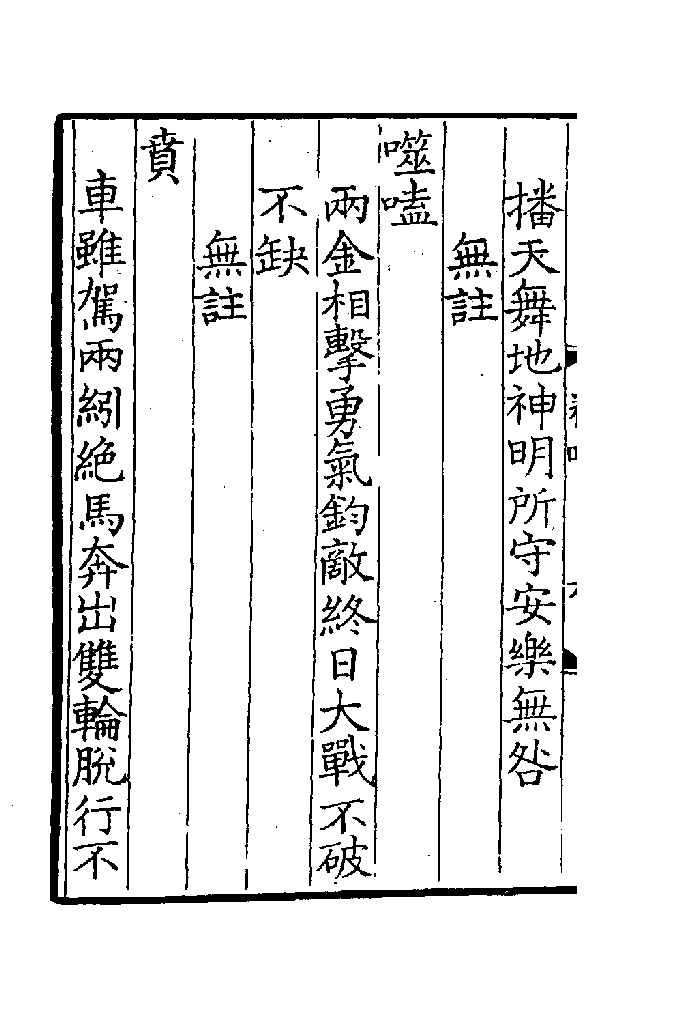 播天舞地神明所守安樂無咎
無註
噬嗑
兩金相擊勇氣鈞敵終日大戰不破
不缺
無註
賁
車雖駕兩紖絶馬奔出雙輪脫行不